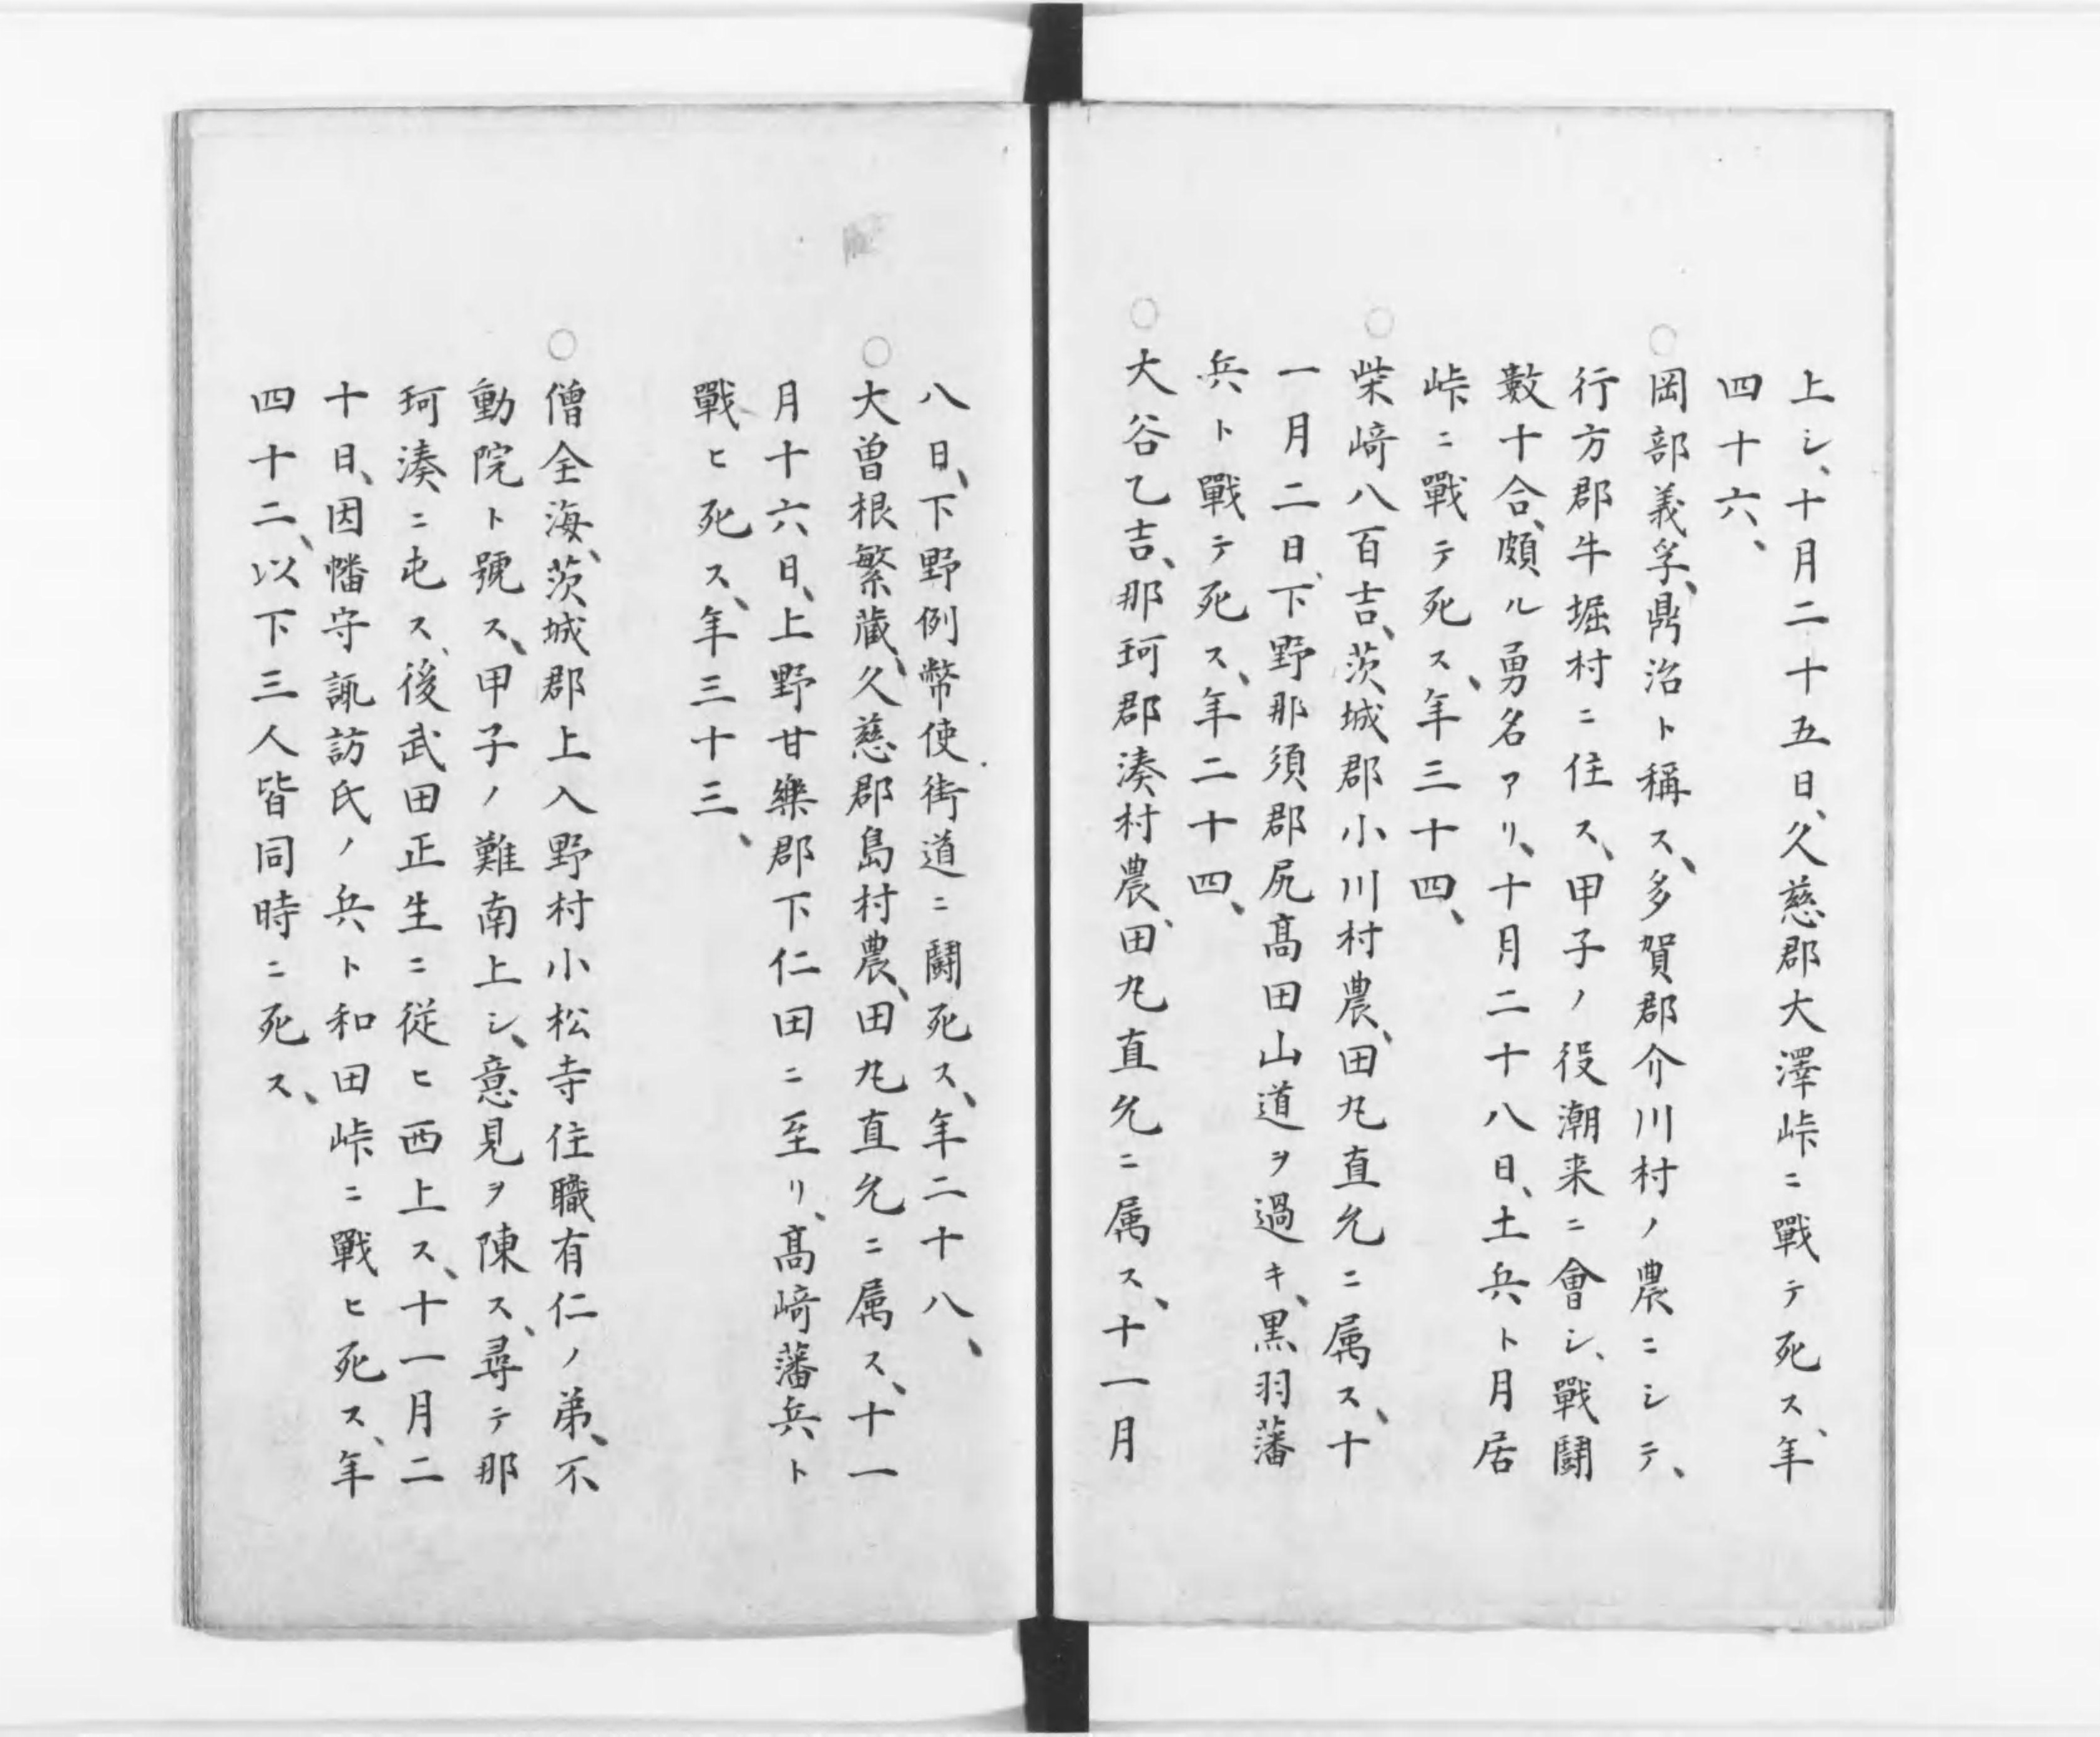 上シ、十月二十五日、久慈郡大澤峠ニ戰テ死ス、年
四十六、
○岡部義孚、鼎治ト稱ス、多賀郡介川村ノ農ニシテ、
行方郡牛堀村ニ住ス、甲子ノ役潮来ニ會シ、戰鬪
數十合、頗ル勇名アリ、十月二十八日、土兵ト月居
峠ニ戰テ死ス、年三十四、
○柴﨑八百吉、茨城郡小川村農、田丸直允ニ属ス、十
一月二日、下野那須郡尻髙田山道ヲ過キ、黒羽藩
兵ト戰テ死ス、年二十四、
○大谷乙吉、那珂郡湊村農、田丸直允ニ属ス、十一月
八日、下野例幣使街道ニ鬪死ス、年二十八、
○大曽根繁藏、久慈郡島村農、田丸直允ニ属ス、十一
月十六日、上野甘樂郡下仁田ニ至リ、髙﨑藩兵ト
戰ヒ死ス、年三十三、
○僧全海、茨城郡上入野村小松寺住職有仁ノ弟、不
動院ト號ス、甲子ノ難南上シ、意見ヲ陳ス、尋テ那
珂湊ニ屯ス、後武田正生ニ従ヒ西上ス、十一月二
十日、因幡守諏訪氏ノ兵ト和田峠ニ戰ヒ死ス、年
四十二、以下三人皆同時ニ死ス、